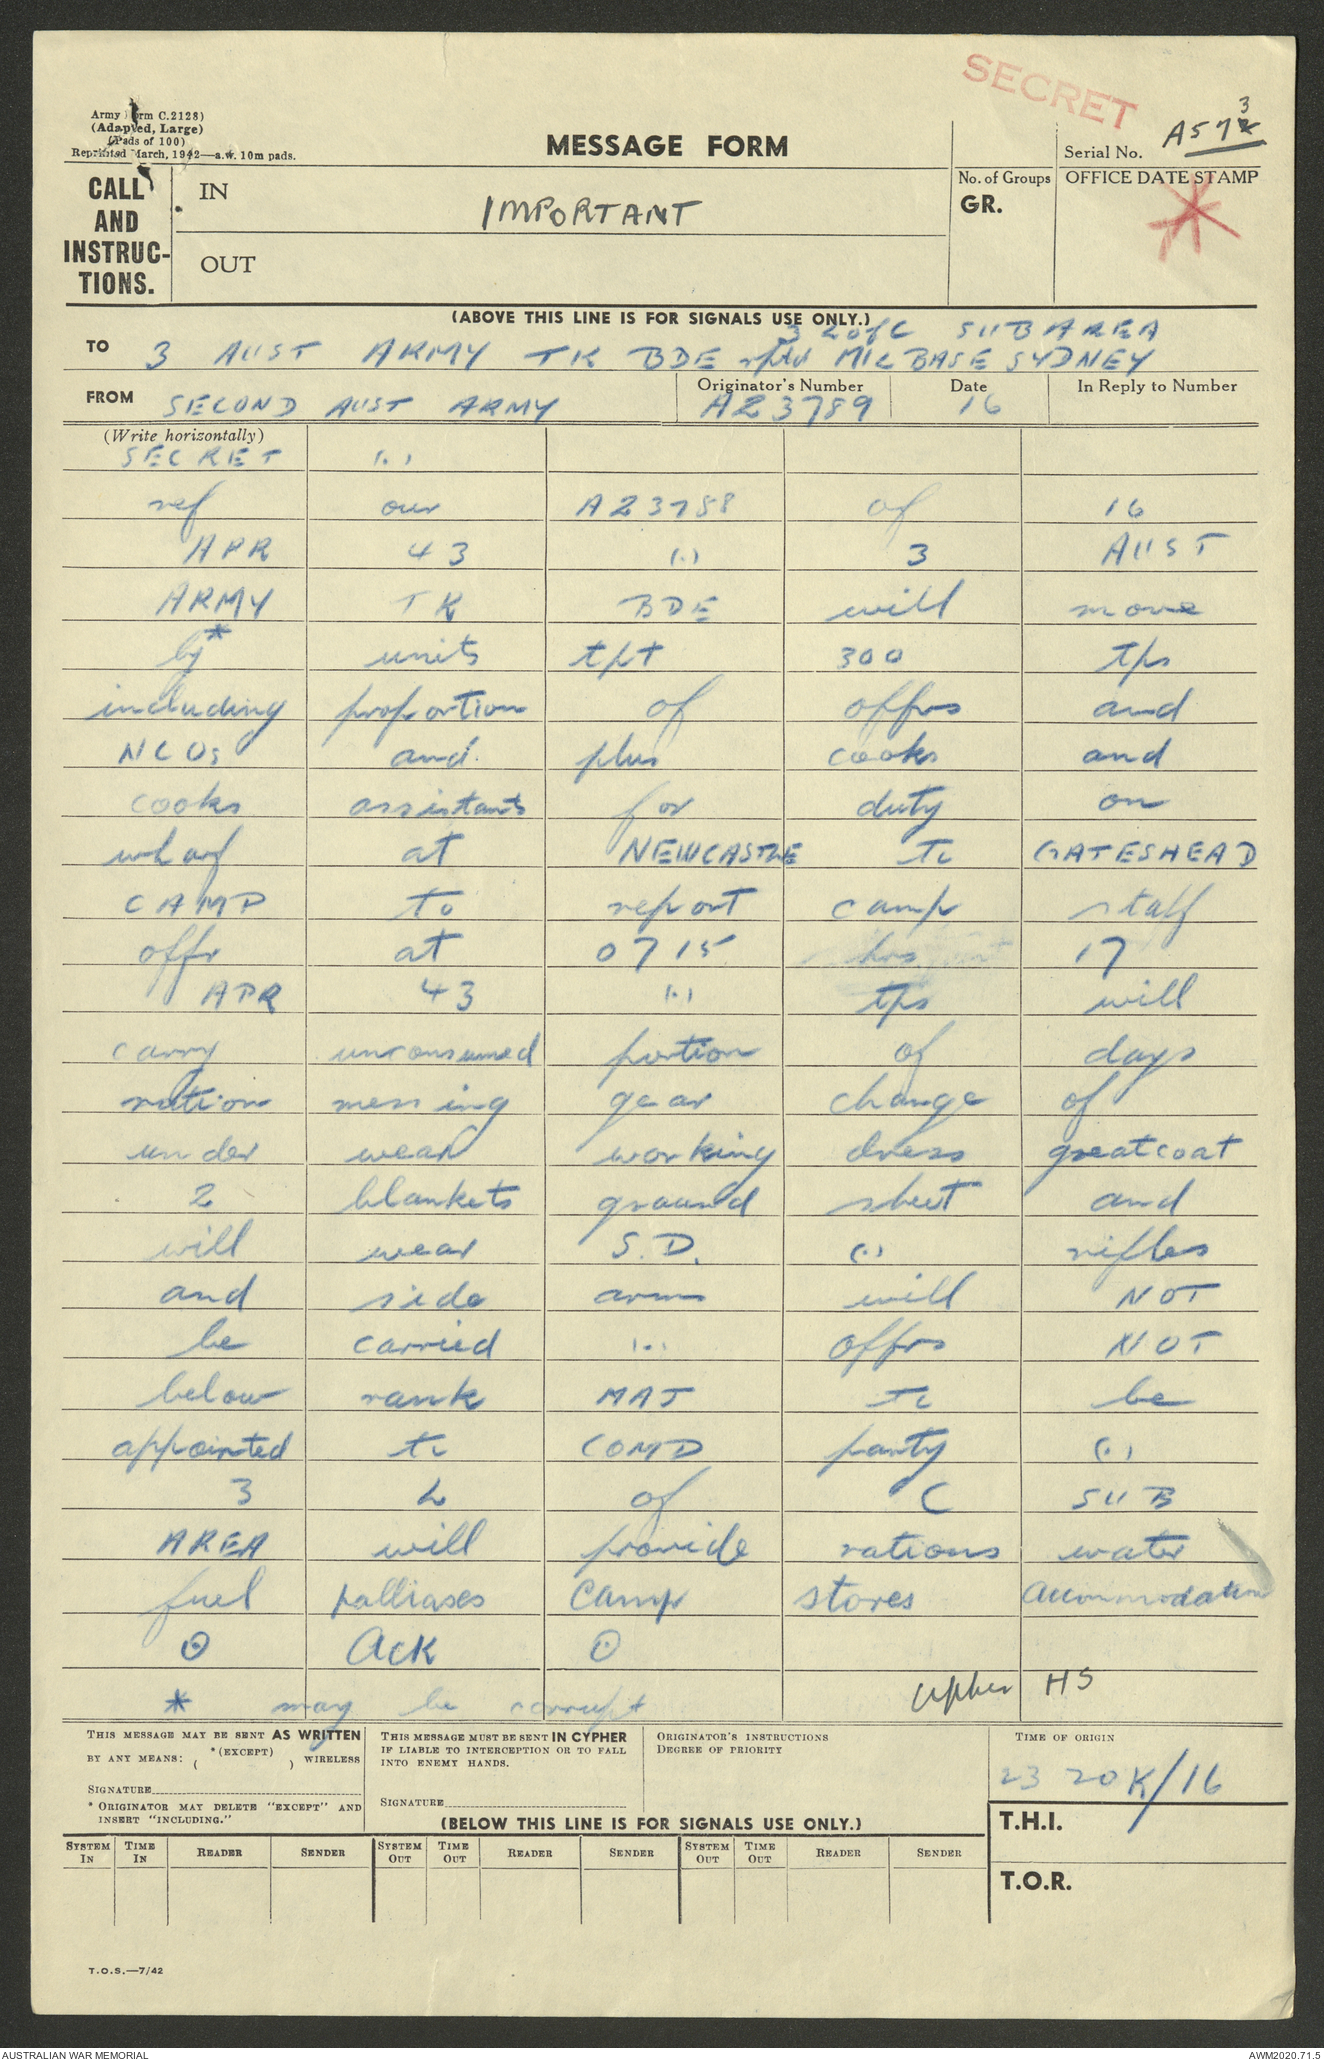 SECRET
Army Form C.2128)
(Adapted, Large)
(Pads of 100)
Reprinted March, 1942—a.w. 10m pads.
MESSAGE FORM
Serial No. A573
CALL AND INSTRUC-TIONS.
IN
IMPORTANT
OUT
No. of Groups
GR.
OFFICE DATE STAMP
(ABOVE THIS LINE IS FOR SIGNALS USE ONLY.)
3 L of C SUB AREA
TO 3 AUST ARMY TK BDE rptd MIL BASE SYDNEY
FROM SECOND AUST ARMY
Originator's Number A23789
Date 16
In Reply to Number
(Write horizontally)
SECRET (.)
ref our A23788 of 16
APR 43 (.) 3 AUST
ARMY TK BDE will move
by* units tpt 300 tps
including proportion of offrs and
NCOs and plus cooks and
cooks assistants for duty on
wharf at NEWCASTLE to GATESHEAD
CAMP to report camp staff
offr at 0715 hrs 17
APR 43 (.) tps will
carry unconsumed portion of days
ration messing gear change of
under wear working dress greatcoat
2 blankets ground sheet and
will wear S.D. (.) rifles
and side arms will NOT
be carried (.) offrs NOT
below rank MAJ to be
appointed to COMD party (.)
3 L of C SUB
AREA will provide rations water
fuel palliases camp stores accommodation
(.) Ack (.)
* may be corrupt
cypher HS
THIS MESSAGE MAY BE SENT AS WRITTEN
BY ANY MEANS: ( *(EXCEPT) ) WIRELESS
SIGNATURE
* ORIGINATOR MAY DELETE "EXCEPT" AND
INSERT "INCLUDING."
THIS MESSAGE MUST BE SENT IN CYPHER
IF LIABLE TO INTERCEPTION OR TO FALL
INTO ENEMY HANDS.
SIGNATURE
ORIGINATOR'S INSTRUCTIONS
DEGREE OF PRIORITY
TIME OF ORIGIN
2320K/16
(BELOW THIS LINE IS FOR SIGNALS USE ONLY.)
T.H.I.
SYSTEM IN TIME IN READER SENDER SYSTEM OUT TIME OUT READER SENDER SYSTEM OUT TIME OUT READER SENDER
T.O.R.
T.O.S.—7/42
AUSTRALIAN WAR MEMORIAL AWM2020.71.5